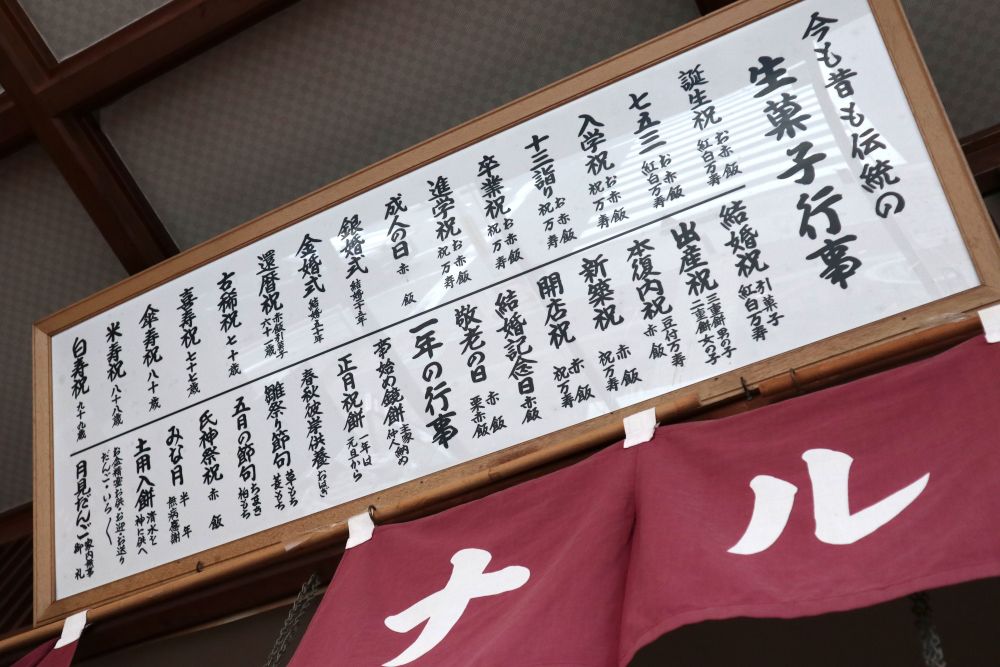 今も昔も伝統の
生菓子行事
誕生祝 お赤飯 紅白万寿
七五三 お赤飯 紅白万寿
入学祝 お赤飯 祝万寿
十三詣り お赤飯 祝万寿
卒業祝 お赤飯 祝万寿
進学祝 お赤飯 祝万寿
成人の日 赤飯
銀婚式 結婚廿五年
金婚式 結婚五十年
還暦祝 赤飯引菓子 六十一歳
古稀祝 七十歳
喜寿祝 七十七歳
傘寿祝 八十歳
米寿祝 八十八歳
白寿祝 九十九歳
結婚祝 引菓子 紅白万寿
出産祝 三重餅男の子 二重餅女の子
本復内祝 赤飯 豆付万寿
新築祝 赤飯 祝万寿
開店祝 赤飯 祝万寿
結婚記念日 赤飯
敬老の日 赤飯 栗赤飯
一年の行事
事始め鏡餅
正月祝餅 一年は元旦から
春秋彼岸供養 おはぎ
雛祭り節句 草もち 菱もち
五月の節句 ちまき 柏もち
氏神祭祝 赤飯
みな月 半年 無病感謝
土用入餅 清水を神に供へ
お盆精霊お供・お迎・お送り だんごいろいろ
月見だんご 家内無事 御礼
ナル